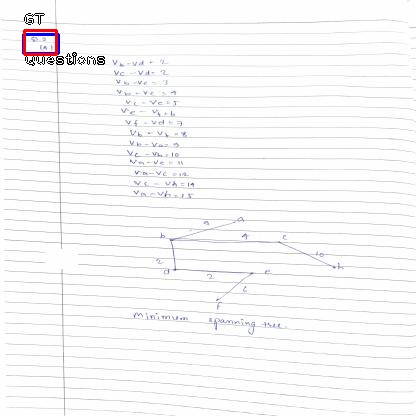 GT
Q.2
(A)
Questions
Vb - Vd = 2
Ve - Vd = 2
Vb - Ve = 3
Vb - Vc = 4
Vc - Ve = 5
Ve - Vf = 6
Vf - Vd = 7
Vb - Vf = 8
Vb - Va = 9
Vc - Vh = 10
Va - Ve = 11
Va - Vc = 12
Vc - Vh = 14
Va - Vh = 15
9 a
b 4 c
2 10
d 2 e h
6
f
minimum spanning tree.